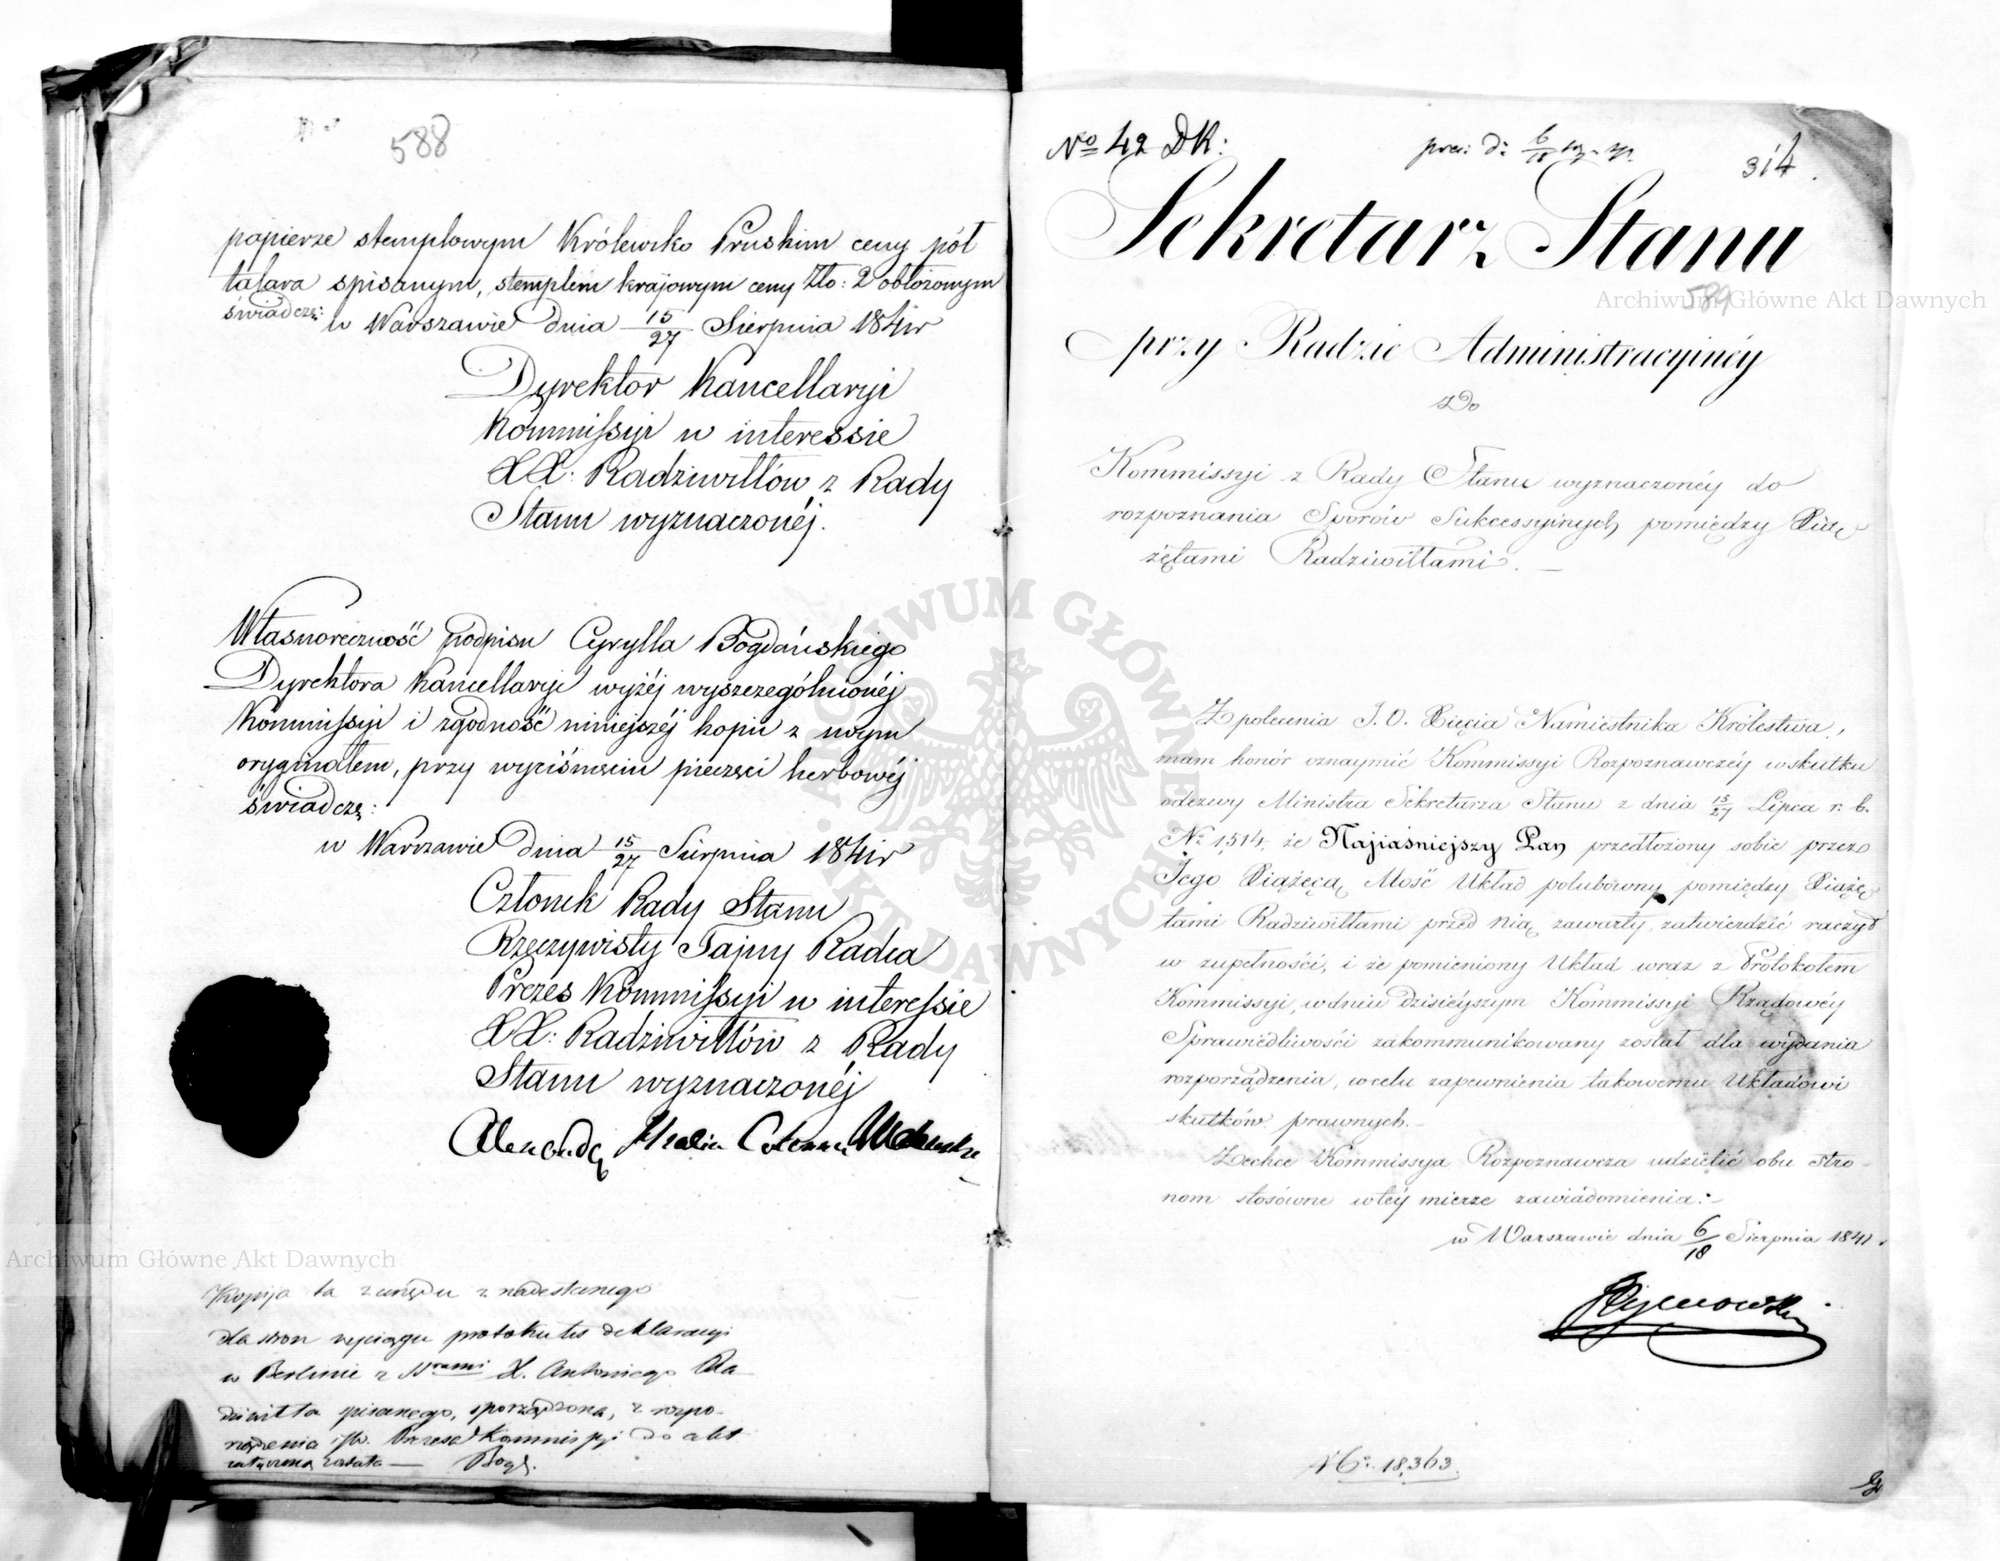 588
papierze stemplowym Królewsko Pruskim ceny pół
talara spisanym, stemplem krajowym ceny Zło: 2 obłożonym
świadczę:
w Warszawie dnia 15/27 Sierpnia 1841r
Dyrektor Kancellaryi
Kommissyi w interessie
XX: Radziwiłłów z Rady
Stanu wyznaczonéj.
Własnoręczność podpisu Cyrylla Bogdańskiego
Dyrektora Kancellaryi wyżéj wyszczególnionéj
Kommissyi i zgodność niniejszéj kopii z swym
oryginałem, przy wyciśnieniu pieczęci herbowéj
świadczę:
w Warszawie dnia 15/27 Sierpnia 1841r
Członek Rady Stanu
Rzeczywisty Tajny Radca
Prezes Kommissyi w interessie
XX: Radziwiłłów z Rady
Stanu wyznaczonéj
Alexander Colonna
Kopija ta z urzędu z nadesłanego
dla stron wyciągu protokułu deklaracyi
w Berlinie z X. Antoniego Ra-
dziwiłła spisanego, sporządzona, z rozpo-
rządzenia Prezesa Kommissyi do akt
załączoną została — Bogd.
Archiwum Główne Akt Dawnych
No 42 DK:
prez: d: 6/18
314
Sekretarz Stanu
589
Archiwum Główne Akt Dawnych
przy Radzie Administracyjnéy
Do
Kommissyi z Rady Stanu wyznaczonéy do
rozpoznania Sporów Sukcessyinych pomiędzy Xią-
żętami Radziwiłłami. —
Z polecenia J. O. Xięcia Namiestnika Królestwa,
mam honór oznaymić Kommissyi Rozpoznawczéy wskutku
odezwy Ministra Sekretarza Stanu z dnia 15/27 Lipca r: b.
No 1514, że Najiaśniejszy Pan przedłożony sobie przez
Jego Xiążęcą Mość Układ polubowny pomiędzy Xiążę-
tami Radziwiłłami przed nią zawarty, zatwierdzić raczył
w zupełności, i że pomieniony Układ wraz z Protokołem
Kommissyi, wdniu dzisieyszym Kommissyi Rządowéy
Sprawiedliwości zakommunikowany został dla wydania
rozporządzenia, wcelu zapewnienia takowemu Układowi
skutków prawnych.—
Zechce Kommissya Rozpoznawcza udzielić obu stro-
nom stósowne wtéy mierze zawiadomienia.—
w Warszawie dnia 6/18 Sierpnia 1841.
No 18,363.
ARCHIWUM GŁÓWNE AKT DAWNYCH